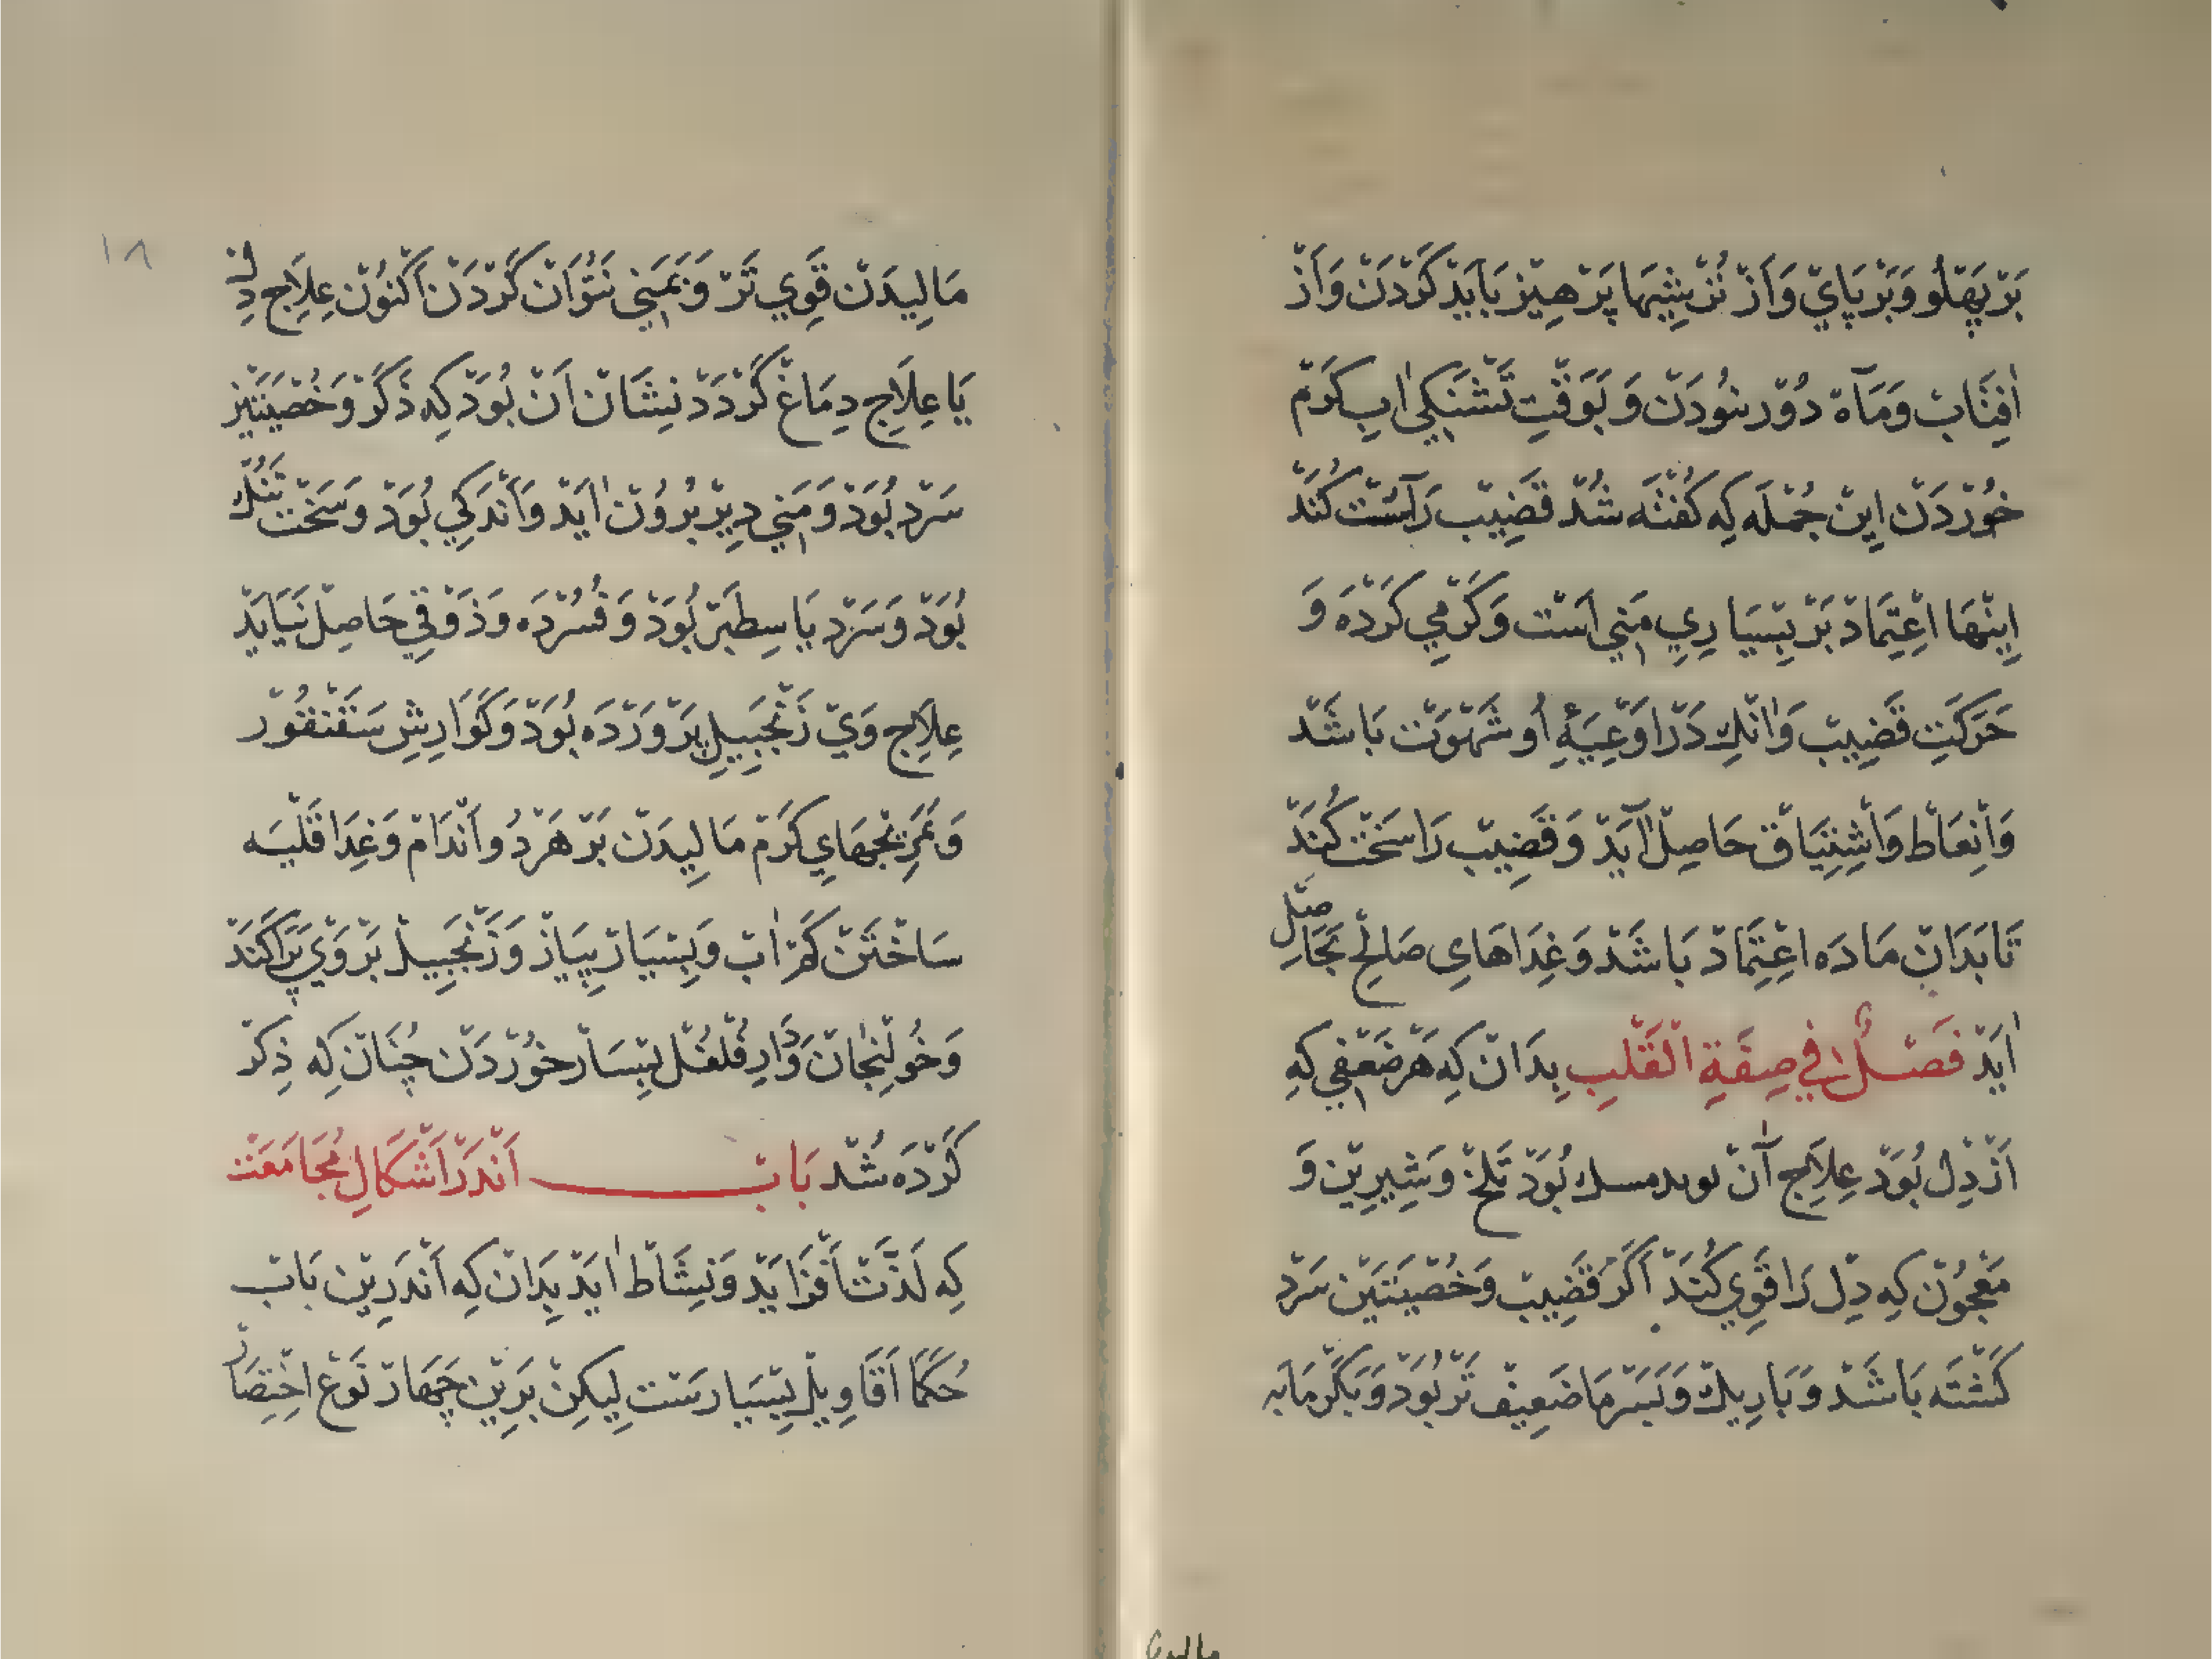 بَرْ پَهْلُو وَبَرْ پَايْ وَاَزْ تُرُشِيهَا پَرْهِيزْ بَايَدْ كَرْدَنْ وَاَزْ
اٰفِتَابْ وَمَاهْ دُوْر بُودَنْ وَبَوَقْتِ تَشْنَكِي اٰبِ كَرْم
خُوْرْدَنْ اِينْ جُمْلَه كِه كُفْتَه شُدْ قَضِيْب رَاسْت كُنَدْ
اِينْهَا اِعْتِمَادْ بَرْ بِسْيَارِيِ مَنِي اَسْت وَكَرْمِي كُرْدَه وَ
حَرَكَتِ قَضِيبْ وَانْكِ دَرْ اَوْعِيَهِٔ اُو شَهْوَتْ بَاشَدْ
وَاَنْعَاظ وَاَشْتِيَاقْ حَاصِلْ اٰيَدْ وَقَضِيبْ رَا سَخْت كُنَدْ
تَا بَدَانْ مَادَه اِعْتِمَادْ بَاشَدْ وَغِدَاهَاىِ صَالِحْ بَحَاصِلْ
اٰيَدْ فَصْلٌ فِي صِفَةِ الْقَلْبِ بِدَانْ كِه هَرْ ضَعْفِي كِه
اَزْ دِلْ بُوَدْ عِلَاجِ اٰنْ مسك بُوَدْ تَلْخْ وَشِيرِيْن وَ
مَعْجُوْن كِه دِلْ رَا قَوِي كُنَدْ اَكَرْ قَضِيبْ وَخُصْيَتَيْن سَرْد
كَشْتَه بَاشَدْ وَبَارِيكْ وَبَسَرْمَا ضَعِيفْ تَرْ بُوَدْ وَبَكَرْمَابَه
مَالِيدَنْ قَوِي تَرْ وَبَمَنِي نَتُوَانْ كَرْدَنْ اَكْنُونْ عِلَاجِ دِلْ
يَا عِلَاجِ دِمَاغْ كَرْدَدْ نِشَانْ اَنْ بُوَدْ كِه ذَكَرْ وَخُصْيَتَيْن
سَرْد بُوَدْ وَمَنِي دِيْر بُرُوْن اٰيَدْ وَاَنْدَكِي بُوَدْ وَسَخْت تُنُكْ
بُوَدْ وَسَرْد يَا سِطَبَرْ بُوَدْ وَفُسُرْدَه وَذَوْقِي حَاصِلْ نَيَايَدْ
عِلَاجِ وَيْ زَنْجَبِيلِ پَرْوَرْدَه بُوَدْ وَكَوَارِشِ سَقَنْقُوْر
وَبَمَزِنْجِهَايِ كَرَمْ مَالِيدَنْ بَرْ هَرْ دُو اَنْدَامْ وَغِدَا قَلْيَه
سَاخْتَنْ كَمْ اٰبْ وَبِسْيَارْ پِيَازْ وَزَنْجَبِيلْ بَرْ وَيْ پَرَاكَنَدْ
وَخُولِنْجَانْ وَدَارِ فُلْفُلْ بِسْيَارْ خُوْرْدَنْ چُنَانْ كِه ذِكْرْ
كَرْدَه شُدْ بَابْ اَنْدَرْ اَشْكَالِ مُجَامَعَتْ
كِه لَذَّتْ اَفْزَايَدْ وَنِشَاطْ اٰيَدْ بِدَانْ كِه اَنْدَرِيْن بَابْ
حُكَمَا اَقَاوِيلْ بِسْيَارَسْت لِيكِنْ بَرِيْن چَهَارْ نَوْع اِخْتِصَارْ
١٨